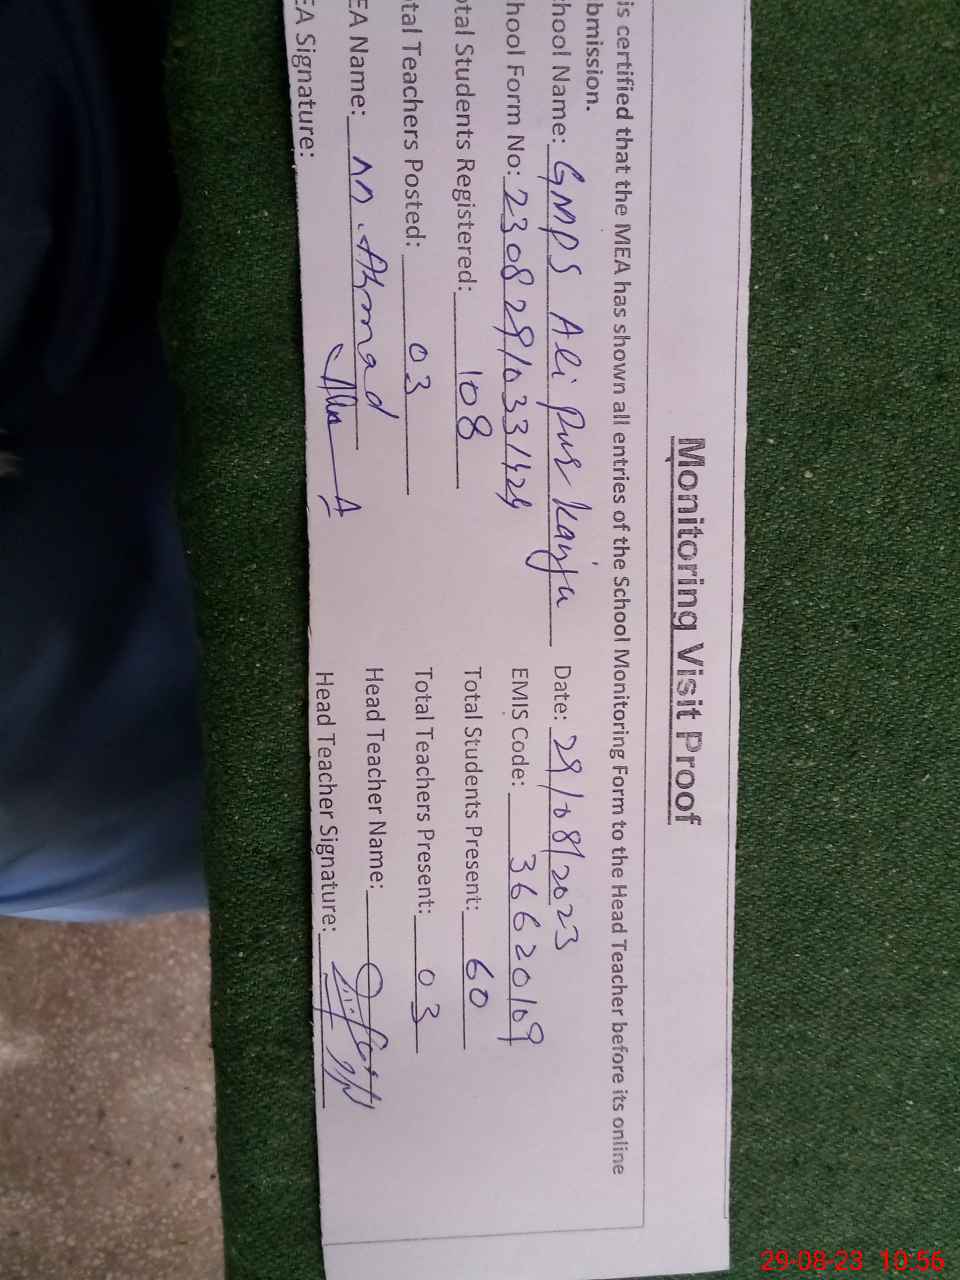 Monitoring Visit Proof
is certified that the MEA has shown all entries of the School Monitoring Form to the Head Teacher before its online
bmission.
hool Name: GMPS Ali Pur Kanju Date: 29/08/2023
hool Form No: 23082910331429 EMIS Code: 36620109
otal Students Registered: 108 Total Students Present: 60
otal Teachers Posted: 03 Total Teachers Present: 03
EA Name: M. Ahmad Head Teacher Name:
EA Signature: Head Teacher Signature:
29-08-23 10:56